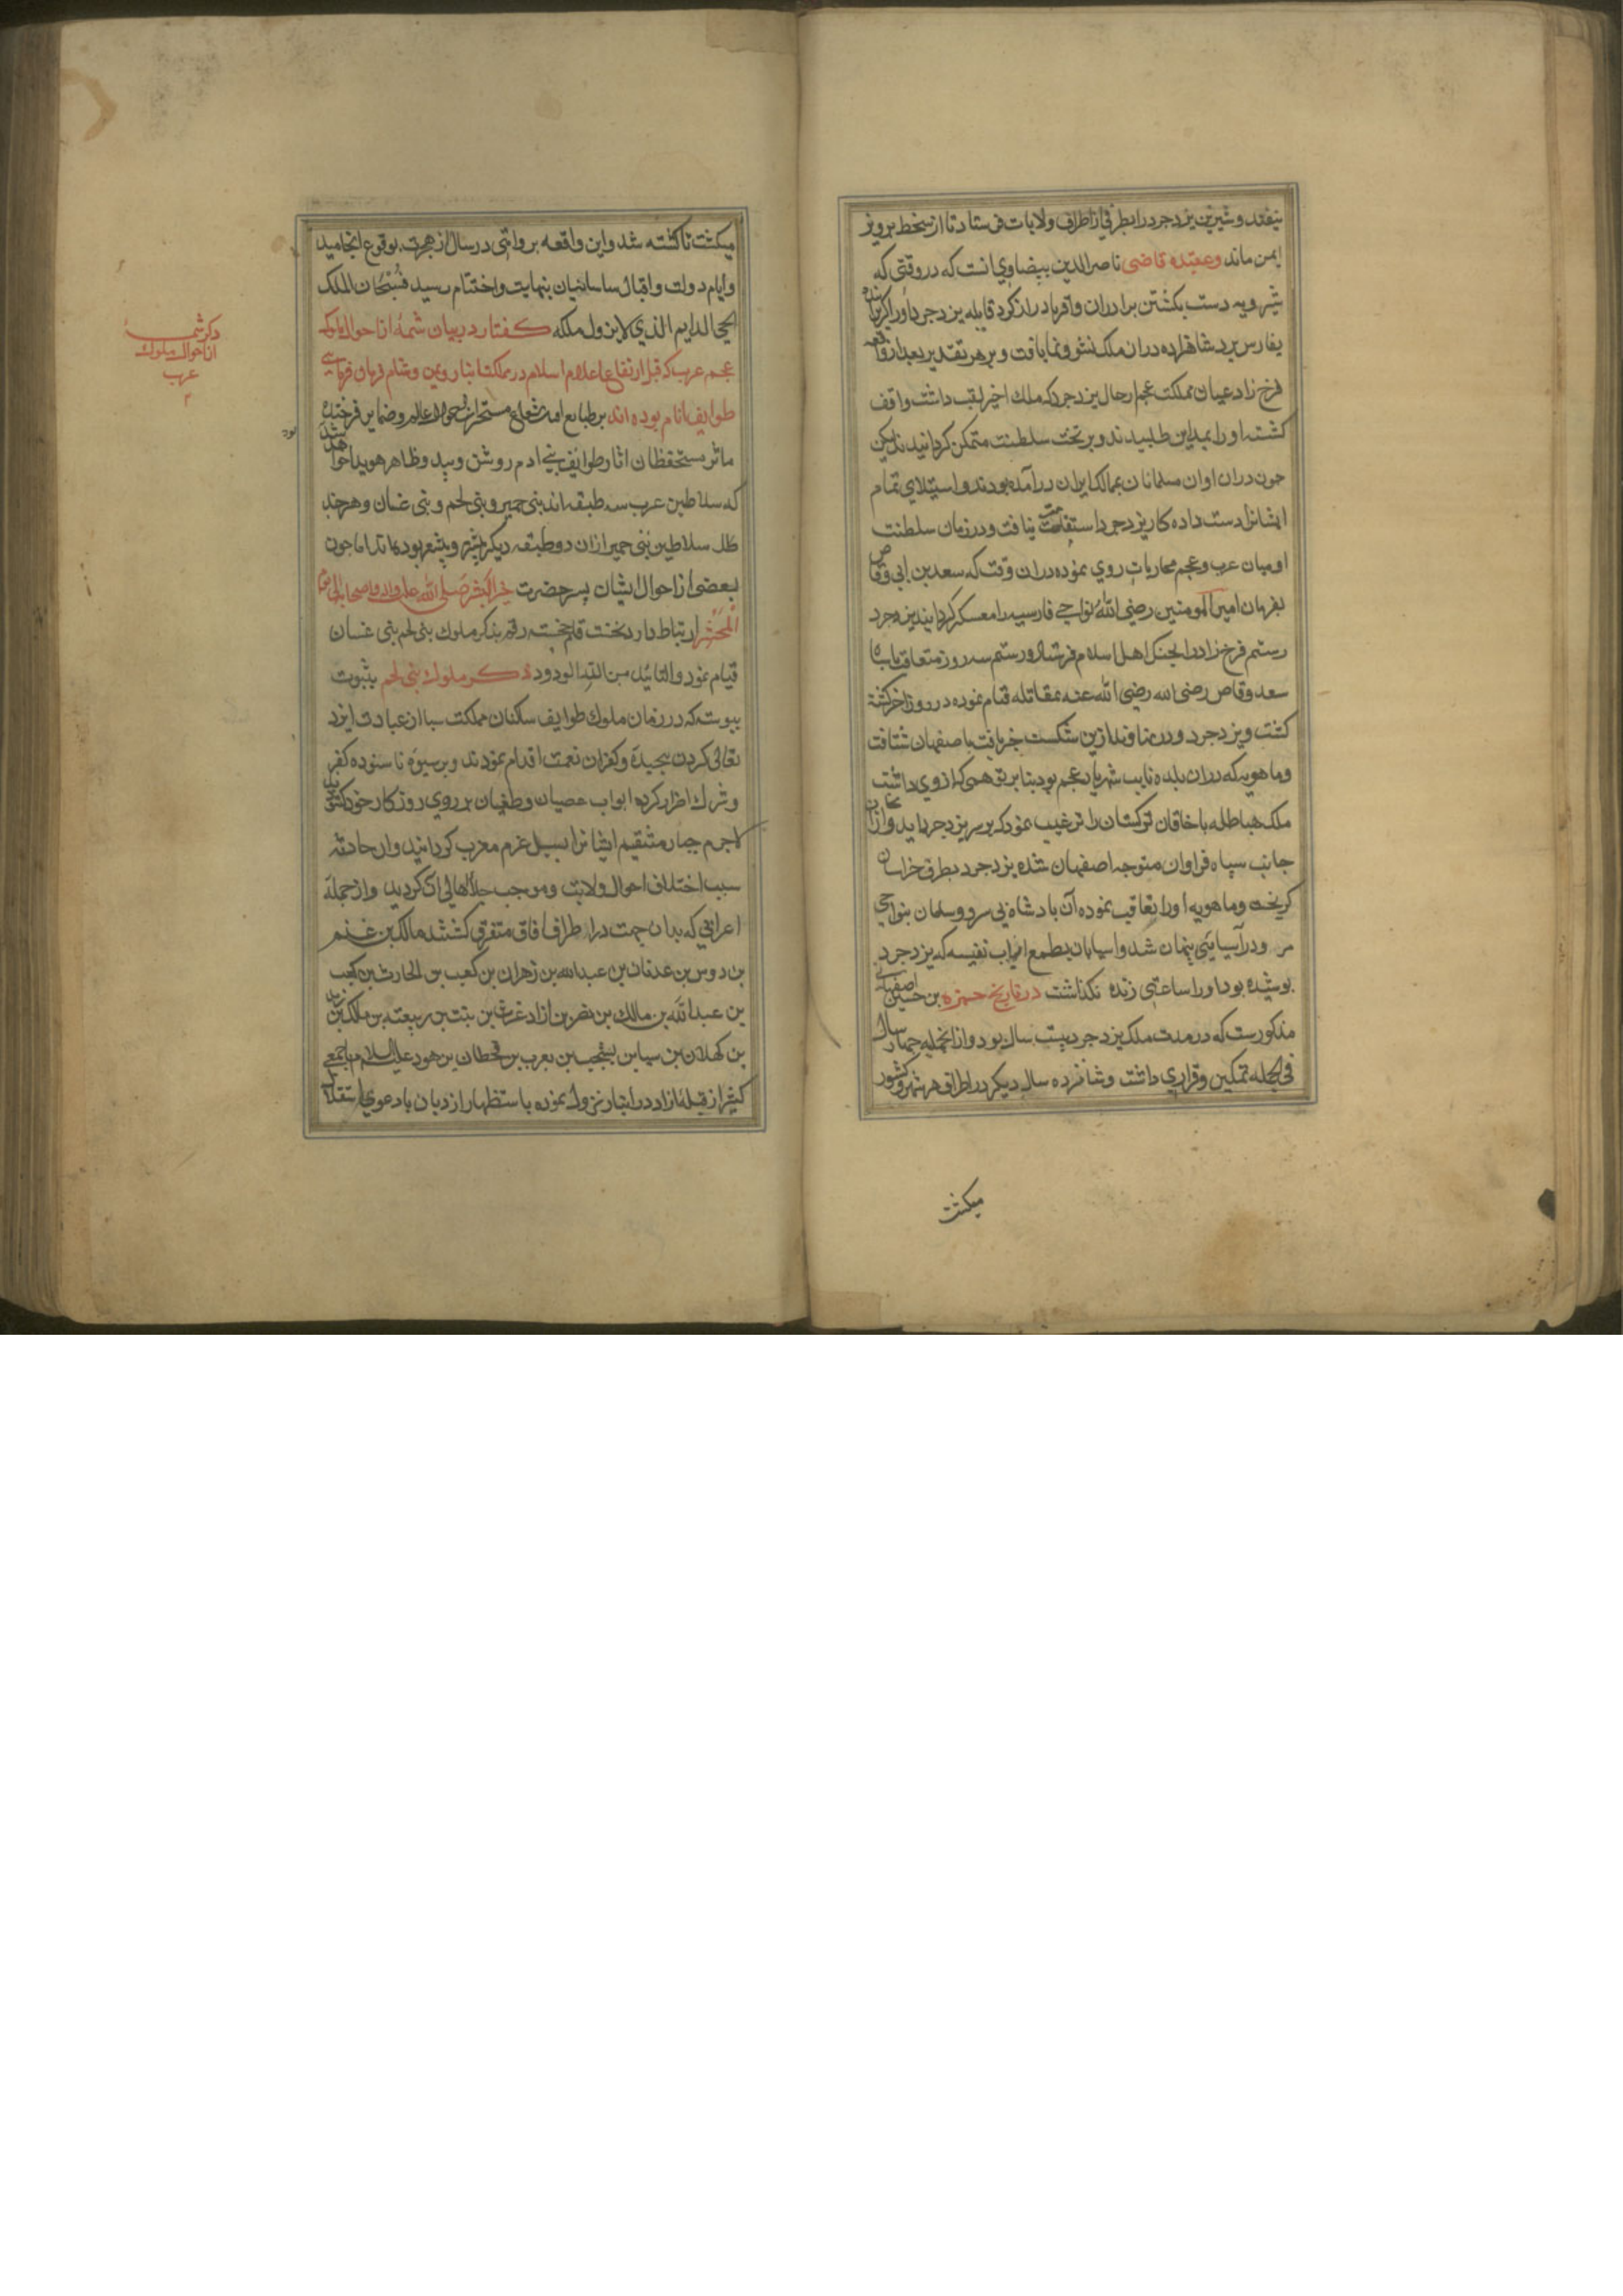 بیفتد و شیرین یزدجرد را بطرفی از اطراف ولایات فرستاد تا از سخط پرویز
ایمن ماند و عقیده قاضی ناصرالدین بیضاوی انست که در وقتی که
شیرویه دست بکشتن برادران واقربا دراز کرد قابله یزدجرد او را
بفارس برد شاهزاده دران ملک نشو و نما یافت و بر هر تقدیر بعد از واقعه
فرخ زاد عیان مملکت عجم ارحال یزدجرد که ملک اخیر لقب داشت واقف
کشته او را بمداین طلبیدند و بر تخت سلطنت متمکن کردانیدند لیکن
جون دران اوان مسلمانان بممالک ایران درآمده بودند و استیلای تمام
ایشانرا دست داده کار یزدجرد استقامت نیافت و در زمان سلطنت
او میان عرب و عجم محاربات روی نموده دران وقت که سعد بن ابی وقاص
بفرمان امیر المومنین رضی الله نواحی قادسیه را معسکر کردانید یزدجرد
رستم فرخ زاد را بجنک اهل اسلام فرستاد و رستم سه روز متعاقب با
سعد وقاص رضی الله رضی الله عنه بمقاتله قیام نموده در روز اخر کشته
کشت و یزدجرد در نهاوند ازین شکست خبر یافت باصفهان شتافت
و ماهویه که دران بلده نایب شهریار عجم بود بنا بر توهمی که از وی داشت
ملک هیاطله با خاقان ترکستان را ترغیب نمود که بر سر یزدجرد اید و ازان
جانب سپاه فراوان متوجه اصفهان شده یزدجرد بطرف خراسان
کریخت و ماهویه او را تعاقب نموده آن بادشاه بی سر و سامان بنواحی
مر ودر آسیائی پنهان شد و اسیابان بطمع اثیاب نفیسه که یزدجرد
پوشیده بود او را ساعتی زنده نکذاشت در تاریخ حمزه بن حسین اصفهانی
مذکورست که در مدت ملک یزدجرد بیست سال بود و ازانجمله جهار سال
فی الجمله تمکین و قراری داشت و شانزده سال دیکر در اطراف هر شهر و کشور
میکشت
میکشت تا کشته شد و این واقعه بروایتی در سال از هجرت بوقوع انجامید
و ایام دولت و اقبال ساسانیان بنهایت و اختتام رسید فسبحان الملک
الحی الدایم الذی لایزول ملکه کفتار در بیان شمهٔ از احوال
عرب که قبل از ارتفاع اعلام اسلام در مملکت انبار و یمن و شام فرمان فرمای
طوایف انام بوده اند بر طبایع مستحضران احوال عالم و ضمایر فرخنده
ماثر مستحفظان اثار طوایف بنی ادم روشن و پدید و ظاهر و هویدا خواهد
بود
که سلاطین عرب سه طبقه اند بنی حمیر و بنی لخم و بنی غسان و هرچند
ظل سلاطین بنی حمیر ازان دو طبقه دیکر بیشتر و پیشتر بوده اند اما جون
بعضی از احوال ایشان بسر حضرت خیر البشر صلی الله علیه واله واصحابه الی یوم
المحشر ارتباط دارد نخست قلم خجسته رقم بذکر ملوک بنی لخم بنی غسان
قیام نمود والتائید من الله الودود ذکر ملوک بنی لخم بثبوت
پیوسته که در زمان ملوک طوایف سکنان مملکت سبا از عبادت ایزد
تعالی کردن پیجیده و کفران نعمت اقدام نمودند و بر شیوه نا ستوده کفر
و شرک اصرار کرده ابواب عصیان و طغیان بر روی روزکار خود کشودند
لاجرم جبار منتقم ایشانرا بسیل عرم معذب کردانید و ان حادثه
سبب اختلاف احوال ولایت و موجب جلا اهالی ان کردید و از جملهٔ
اعرابی که بدان جهت در اطراف افاق متفرق کشتند مالک بن غنم
بن دوس بن عدنان بن عبدالله بن زهران بن کعب بن الحارث بن کعب
بن عبدالله بن مالک بن نضر بن ازاد غوث بن بنت بن ربیعته بن مالک بن زید
بن کهلان بن سبا بن یشجب بن یعرب بن قحطان بن هود علیه السلام با جمعی
کثیر از قبله ازاد در انبار نزول نموده باستظهار ازدیان با دعوی استقلال
ذکر شمهٔ
از احوال ملوک
عرب